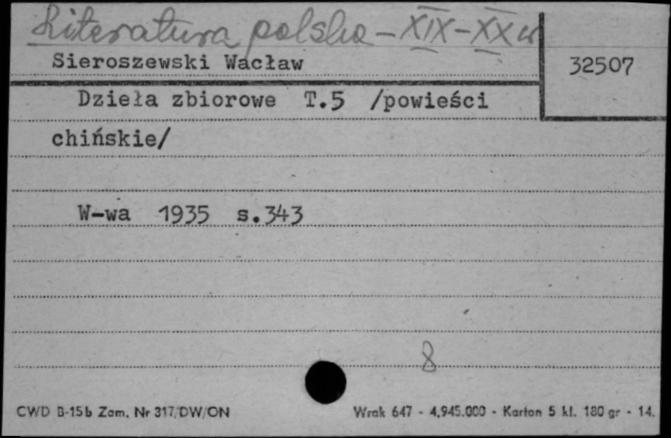 Literatura polska - XIX-XX w
Sieroszewski Wacław
32507
Dzieła zbiorowe T.5 /powieści
chińskie/
W-wa 1935 s.343
8
CWD B-15b Zam. Nr 317/DW/ON
Wrak 647 - 4,945.000 - Karton 5 kl. 180 gr - 14.